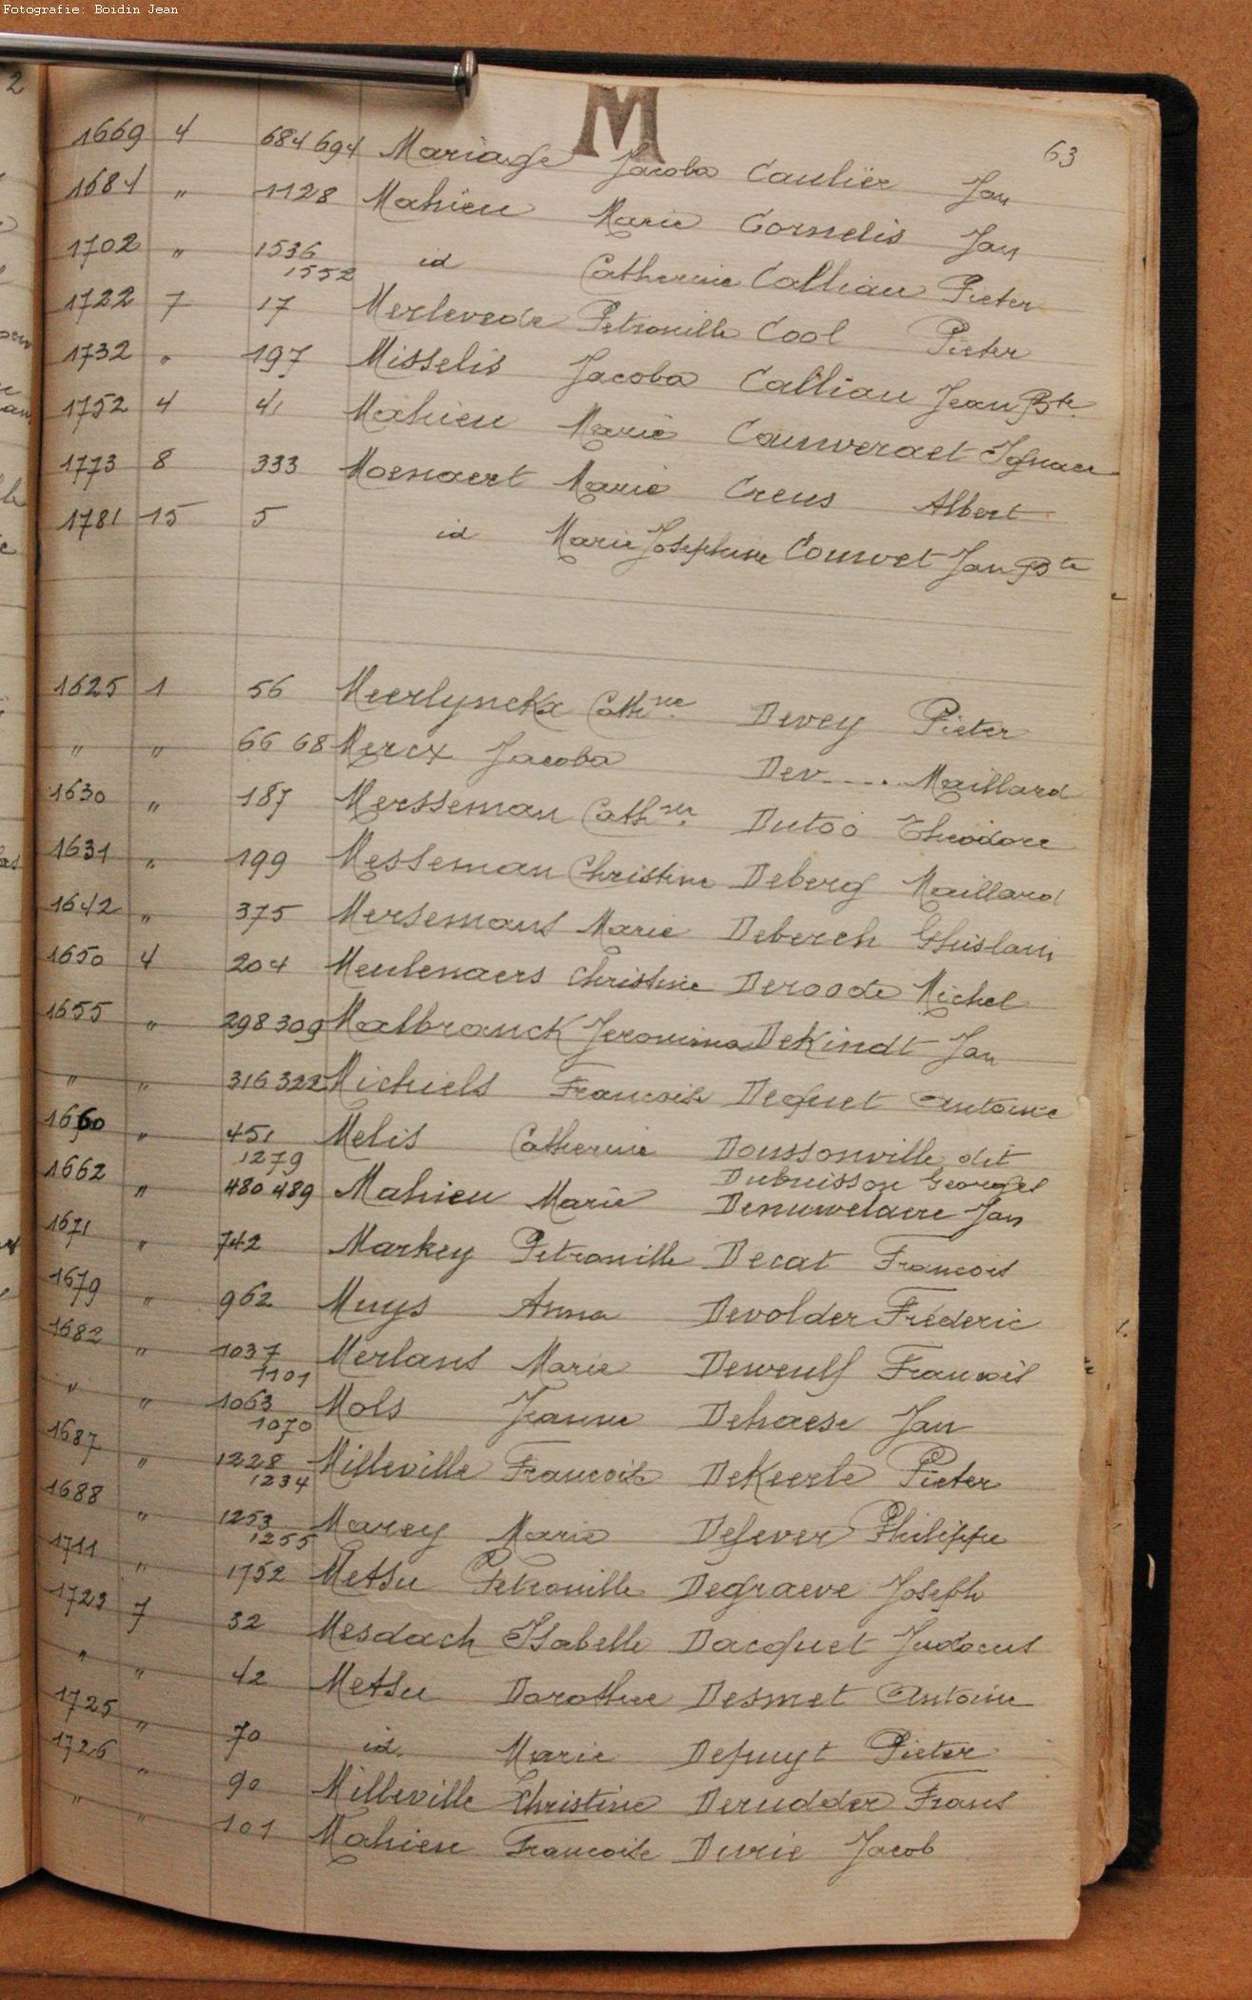 Fotografie: Boidin Jean
2
M
63
1669 4 684 694 Mariage Jacoba Caulier Jan
1681 " 1128 Mahieu Marie Cornelis Jan
1702 " 1536 1552 id Catherine Calliau Pieter
1722 7 17 Merlevede Petronille Cool Pieter
1732 " 197 Misselis Jacoba Calliau Jean Bte
1752 4 41 Mahieu Marie Couwveraet Ignace
1773 8 333 Moenaert Marie Creus Albert
1781 15 5 id Marie Josephine Couvet Jan Bte
1625 1 56 Meerlynckx Cathne Devey Pieter
" " 66 68 Mercx Jacoba Dev..... Maillard
1630 " 187 Mersseman Cathne Dutoo Theodore
1631 " 199 Messeman Christine Deberg Maillard
1642 " 375 Mersemans Marie Deberch Ghislain
1650 4 204 Meulenaers Christine Deroode Michel
1655 " 298 309 Malbranck Jeronima DeKindt Jan
" " 316 322 Michiels Francoise Dequet Antoine
1660 " 451 1279 Melis Catherine Doussonville dit
Dubuisson Georges
1662 " 480 489 Mahieu Marie Denuwelaere Jan
1671 " 742 Markey Petronille Decat Francois
1679 " 962 Muys Anna Devolder Fréderic
1682 " 1037 1101 Merlans Marie Dewulf Francois
" " 1063 1070 Mols Jeanne Dehaese Jan
1687 " 1228 1234 Milleville Francoise DeKeerle Pieter
1688 " 1253 1255 Marey Marie Defever Philippe
1711 " 1752 Metsu Petronille Degraeve Joseph
1723 7 32 Mesdach Isabelle Dacquet Judocus
" " 42 Metsu Dorothee Desmet Antoine
1725 " 70 id. Marie Depuyt Pieter
1726 " 90 Milleville Christine Derudder Frans
" " 101 Mahieu Francoise Durie Jacob